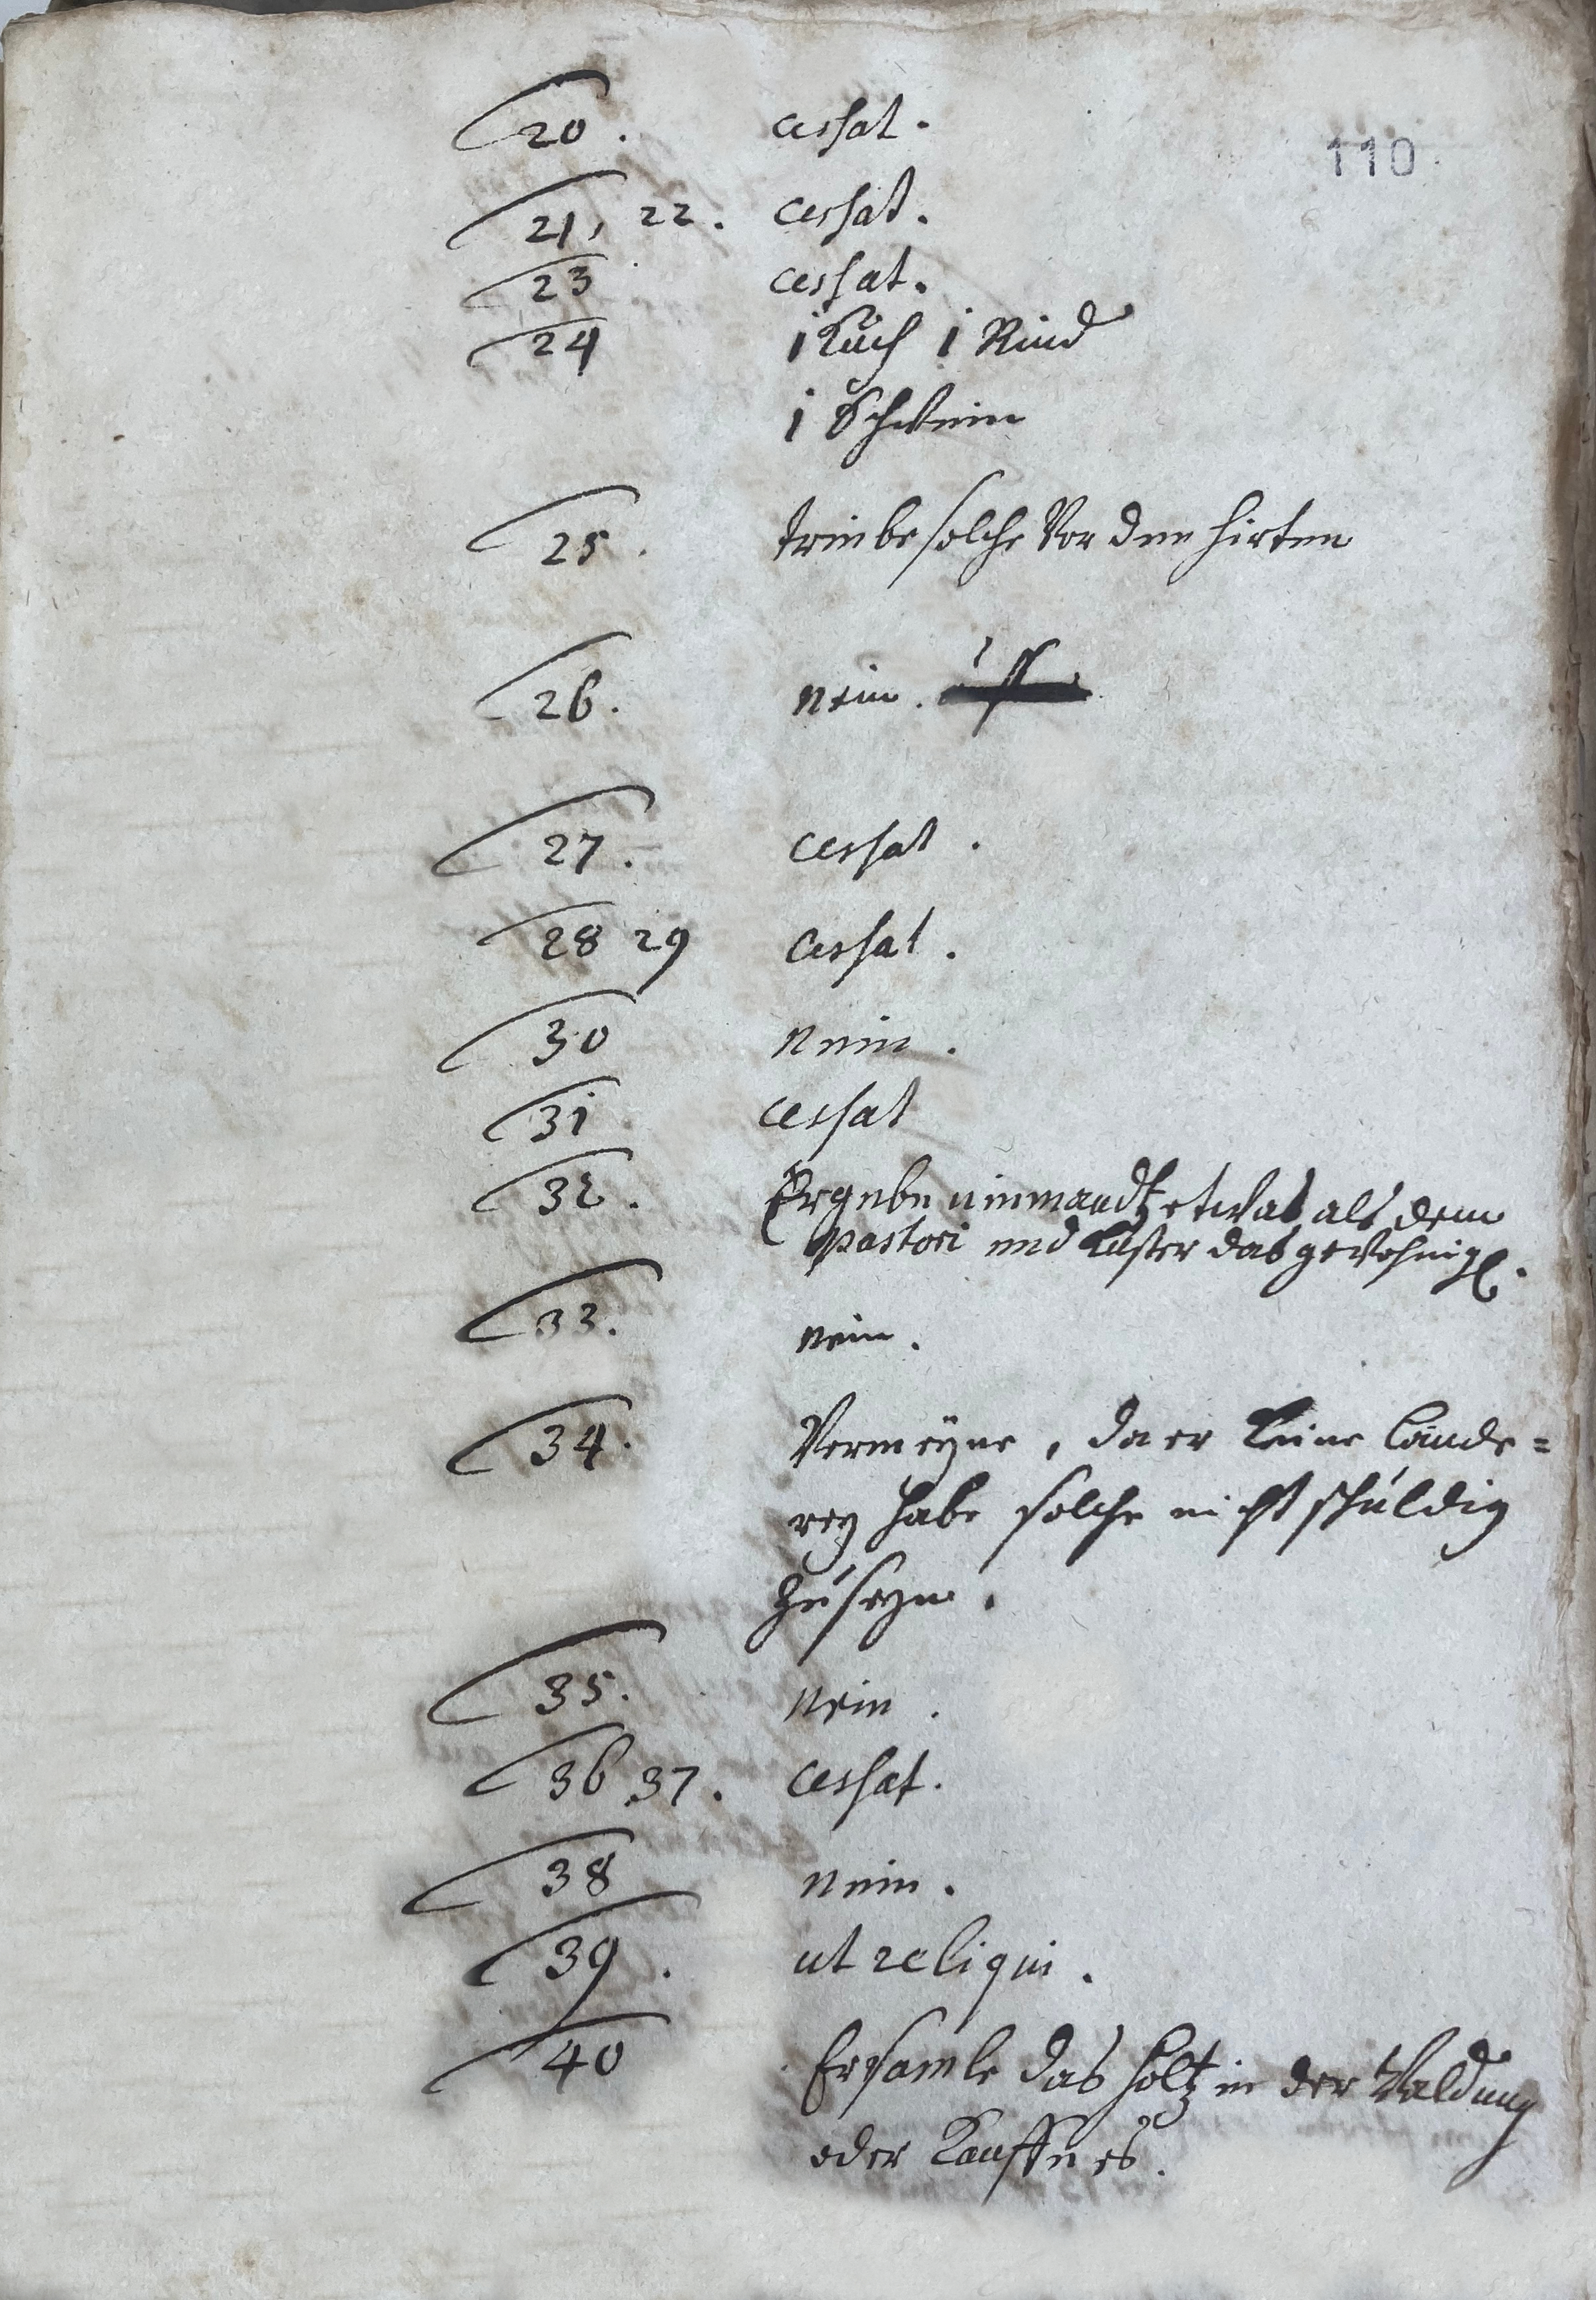 110
20. cessat.
21, 22. cessat.
23 cessat.
24 1 Kuh 1 Rind
1 Schwein
25. treibe solche Vor den hirten
26. nein.
27. cessat.
28 29 cessat.
30 nein.
31 cessat
32. Er gebe niemandtz etwas als dem
pastori und Küster das gewohnig.
33. nein.
34. Vermeyne, da er keine Lände=
rey habe solche nicht schuldig
zu seyn.
35. nein.
36 37. cessat.
38 nein.
39. ut reliqui.
40 Er samle das holtz in der Waldung
oder Kauffe es.